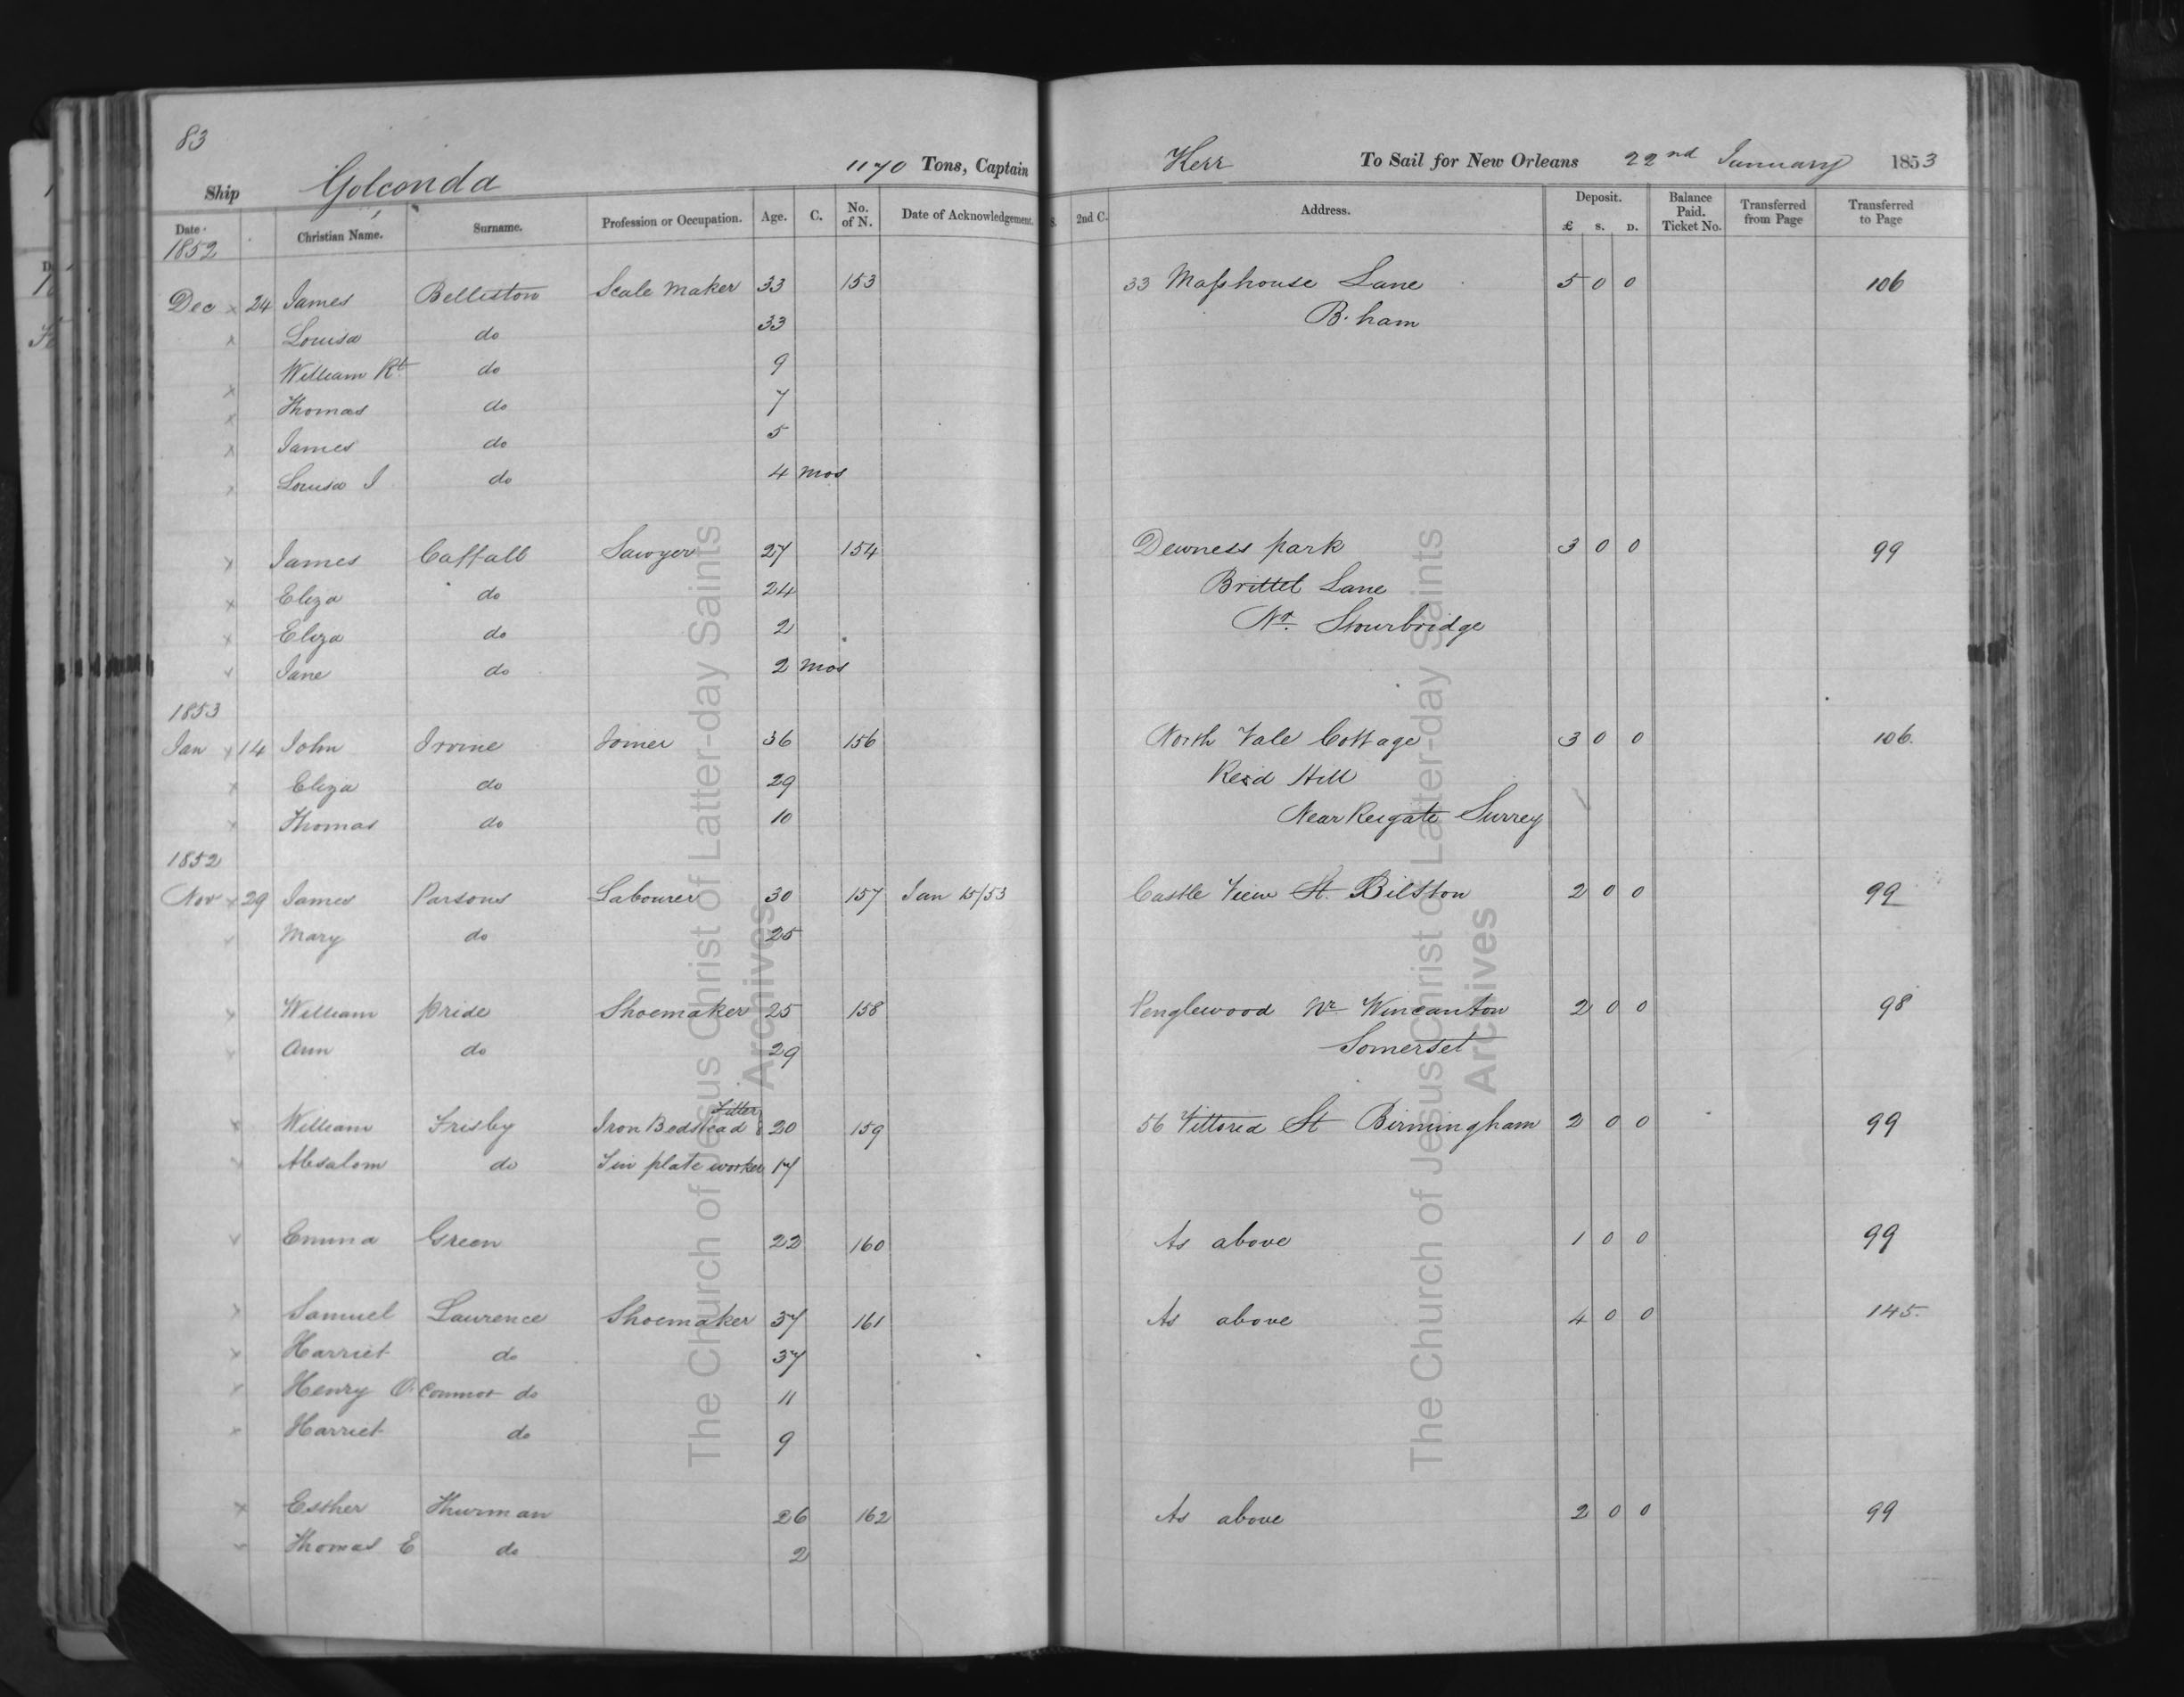 83
Ship Golconda 1170 Tons, Captain Kerr To Sail for New Orleans 22nd January 1853
Date Christian Name. Surname. Profession or Occupation. Age. C. No. of N. Date of Acknowledgement. S. 2nd C. Address. Deposit. £ s. D. Balance Paid. Ticket No. Transferred from Page Transferred to Page
1852
Dec x 24 James Belliston Scale Maker 33 153 33 Masshouse Lane 5 0 0 106
x Louisa do 33 B.ham
x William Rt do 9
x Thomas do 7
x James do 5
x Louisa J do 4 mos
x James Caffall Sawyer 27 154 Dewness park 3 0 0 99
x Eliza do 24 Brittel Lane
x Eliza do 2 Nr. Stourbridge
x Jane do 2 mos
1853
Jan x 14 John Irvine Joiner 36 156 North Vale Cottage 3 0 0 106.
x Eliza do 29 Reid Hill
x Thomas do 10 Near Reigate Surrey
1852
Nov x 29 James Parsons Labourer 30 157 Jan 15/53 Castle View St. Bilston 2 0 0 99
x Mary do 25
x William Pride Shoemaker 25 158 Penglewood Nr Wincanton 2 0 0 98
x Ann do 29 Somerset
x William Frisby Iron Bedstead Fitter 20 159 56 Vittoria St Birmingham 2 0 0 99
x Absalom do Tin plate worker 17
x Emma Green 22 160 As above 1 0 0 99
x Samuel Laurence Shoemaker 37 161 As above 4 0 0 145.
x Harriet do 37
x Henry O'Connor do 11
x Harriet do 9
x Esther Thurman 26 162 As above 2 0 0 99
x Thomas E do 2
The Church of Jesus Christ of Latter-day Saints
Archives
The Church of Jesus Christ of Latter-day Saints
Archives